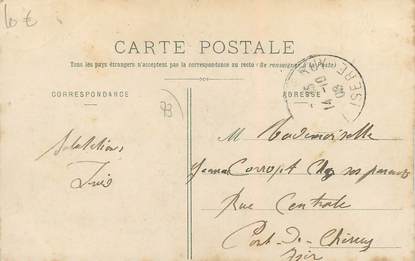 10 €
CARTE POSTALE
Tous les pays étrangers n'acceptent pas la correspondance au recto (Se renseigner à la Poste)
CORRESPONDANCE
ADRESSE
ISERE
14 -10
08
93
M Mademoiselle
Salutations
Jeanne Chez ses parents
Rue Centrale
Pont-de-Chéruy
Isère